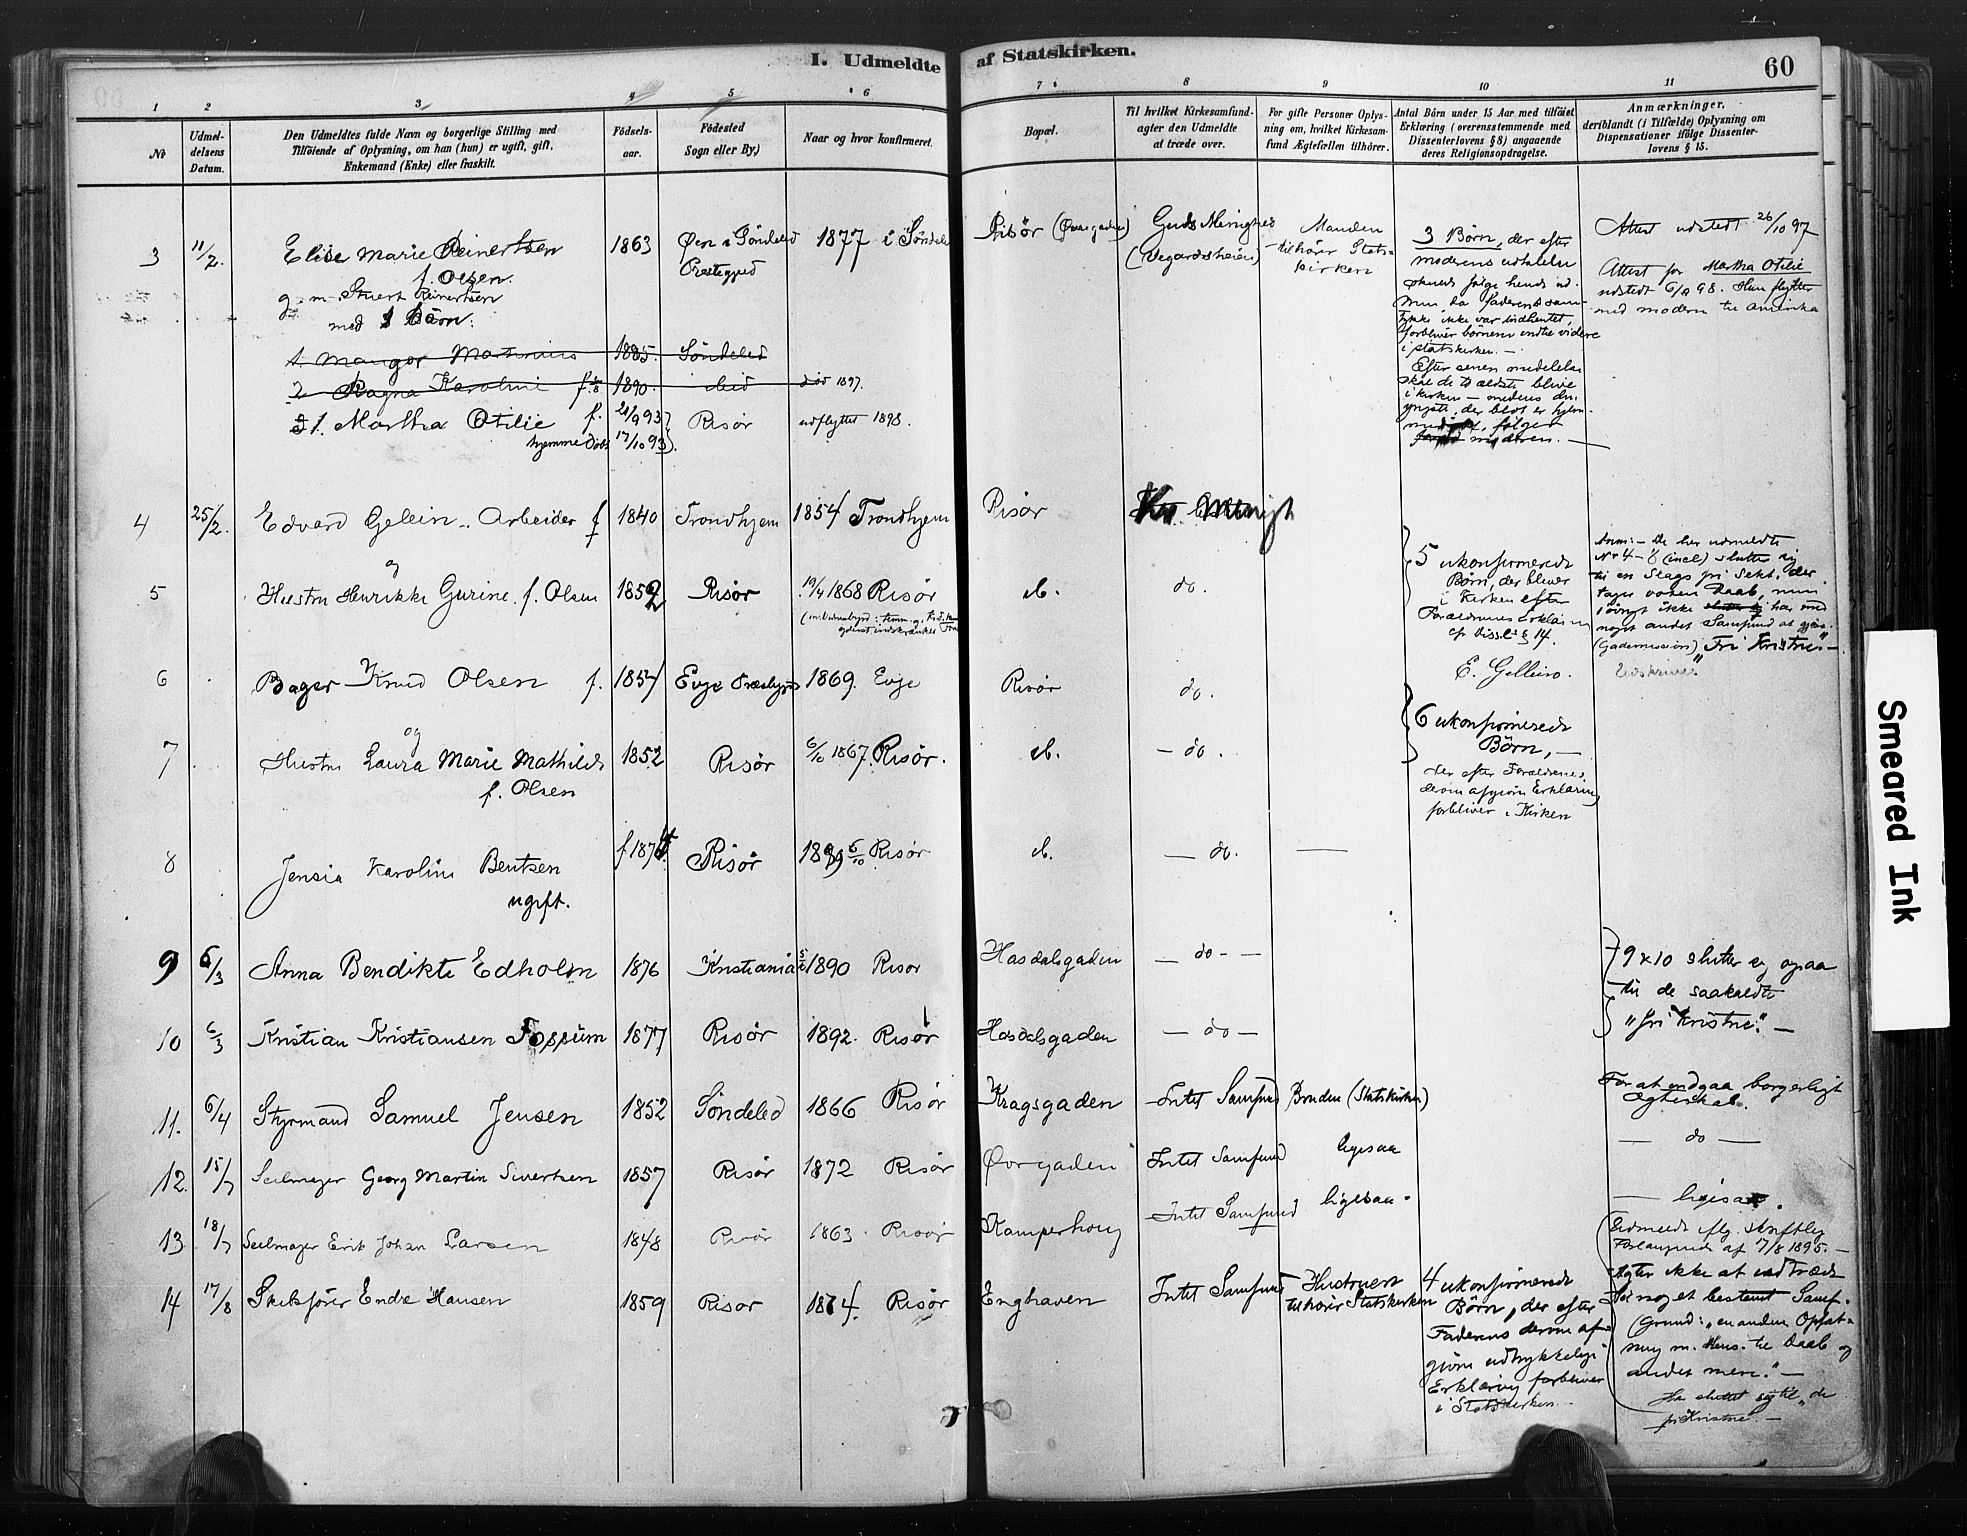 I. Udmeldte af Statskirken.
60
1 2 3 4 5 6 7 8 9 10 11
No
Udmeldelsens Datum.
Den Udmeldtes fulde Navn og borgerlige Stilling med
Tilföiende af Oplysning, om han (hun) er ugift, gift,
Enkemand (Enke) eller fraskilt.
Födselsaar.
Födested
Sogn eller By.)
Naar og hvor konfirmeret.
Bopæl.
Til hvilket Kirkesamfund-
agter den Udmeldte
at træde over.
For gifte Personer Oplys-
ning om, hvilket Kirkesam-
fund Ægtefællen tilhörer.
Antal Börn under 15 Aar med tilföiet
Erklæring (overensstemmende med
Dissenterlovens § 8) angaaende
deres Religionsopdragelse.
Anmærkninger,
deriblandt (i Tilfælde) Oplysning om
Dispensationer ifölge Dissenter-
lovens § 15.
3 11/2. Elise Marie Reinertsen 1863 Øen i Söndeled 1877 i Sönde
f. Olsen. Præstegjed
g. m. Reinertsen
med Börn:
1. Martinius 1885. Söndeled
2 Ragna Karoline f. 1890. ibid död 1897.
1. Martha Otilie f. 21/9 93 Risör udflyttet 1898.
hjemmedöbt 17/10 93).
Risör Guds Menighed Manden
(Vegardsheien) tilhörer Stats-
kirken
3 Börn, der efter
moderens udtalelse
skulde følge hende ud.
Men da faderens sam-
tykke ikke var indhentet,
forbliver börnene indtil videre
i statskirken. —
Efter senere meddelelse
skal de to ældste blive
i kirken — medens den
yngste, der blot er hjem-
medöbt, følger
moderen. —
Attest udstedt 26/10 97
Attest for Martha Otilie
udstedt 6/9 98. Hun flytter
med modern til Amerika
4 25/2. Edvard Gelein. Arbeider f 1840 Trondhjem 1854 Trondhjem Risör
og
5 Hustru Henrikke Gurine f. Olsen 1852 Risör 19/4 1868 Risör do.
5 ukonfirmerede
Börn, der bliver
i Kirken efter
Forældrenes Erklæring
cfr Diss.l. § 14.
E. Gellein.
Anm: — De her udmeldte
Nr 4-8 (incl) slutter sig
til en Slags fri Sekt, der
tager voxen Daab, men
iøvrigt ikke har med
noget andet Samfund at gjøre.
(Gademission) "Fri Kristne". —
6 Bager Knud Olsen f. 1854 Evje 1869. Evje Risör do.
og
7 Hustru Laura Marie Mathilde 1852 Risör 6/10 1867. Risör. — do.
f. Olsen
6 ukonfirmerede
Börn, —
der efter Forældrenes
derom afgivne Erklæring
forbliver i Kirken
8 Jensia Karoline Bentsen f 1874. Risör 1889 6/10 Risör — do. —
ugift.
9 6/3 Anna Bendikte Edholm 1876 Kristiania 1890 Risor Hasdalsgaden — do — —
9 & 10 slutter sig ogsaa
til de saakaldte
"fri Kristne". —
10 6/3 Kristian Kristiansen Fossum 1877 Risör 1892. Risör Hasdalsgaden — do —
11. 6/4 Styrmand Samuel Jensen 1852 Söndeled 1866 Risör Kragsgaden Intet Samfund Bruden (Statskirken)
For at indgaa borgerligt
Ægteskab.
12. 15/7 Seilmager Georg Martin Sivertsen 1857 Risör 1872 Risör Øvregaden Intet Samfund ligesaa — do —
13 18/7 Seilmager Erik Johan Larsen 1848 Risör 1863 Risör Kamperhoug Intet Samfund ligesaa. — ligesaa.
14 17/8 Skibsfører Endre Hansen 1859 Risor 1874. Risör Enghaven Intet Samfund Hustruen
tilhører Statskirken
4 ukonfirmerede
Börn, der efter
Faderens derom af-
givne udtrykkelige
Erklæring forbliver
i Statskirken. —
Udmeldt iflg. skriftlig
Forlangende af 7/8 1895. —
Agter ikke at indtræde
i noget bestemt Samf.
(Grund: "en anden Opfat-
ning m. Hens. til Daab og
andet mere". —
Har sluttet sig til "de
fri Kristne". —
Smeared Ink